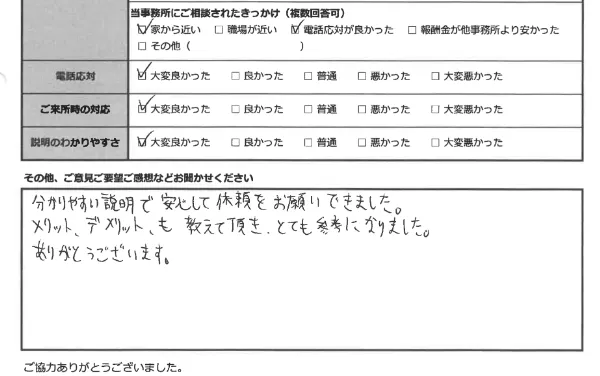 当事務所にご相談されたきっかけ（複数回答可）
☑ 家から近い □ 職場が近い ☑ 電話応対が良かった □ 報酬金が他事務所より安かった
□ その他（ ）
電話応対 ☑ 大変良かった □ 良かった □ 普通 □ 悪かった □ 大変悪かった
ご来所時の対応 ☑ 大変良かった □ 良かった □ 普通 □ 悪かった □ 大変悪かった
説明のわかりやすさ ☑ 大変良かった □ 良かった □ 普通 □ 悪かった □ 大変悪かった
その他、ご意見ご要望ご感想などお聞かせください
分かりやすい説明で安心して依頼をお願いできました。
メリット、デメリット、も教えて頂き、とても参考になりました。
ありがとうございます。
ご協力ありがとうございました。